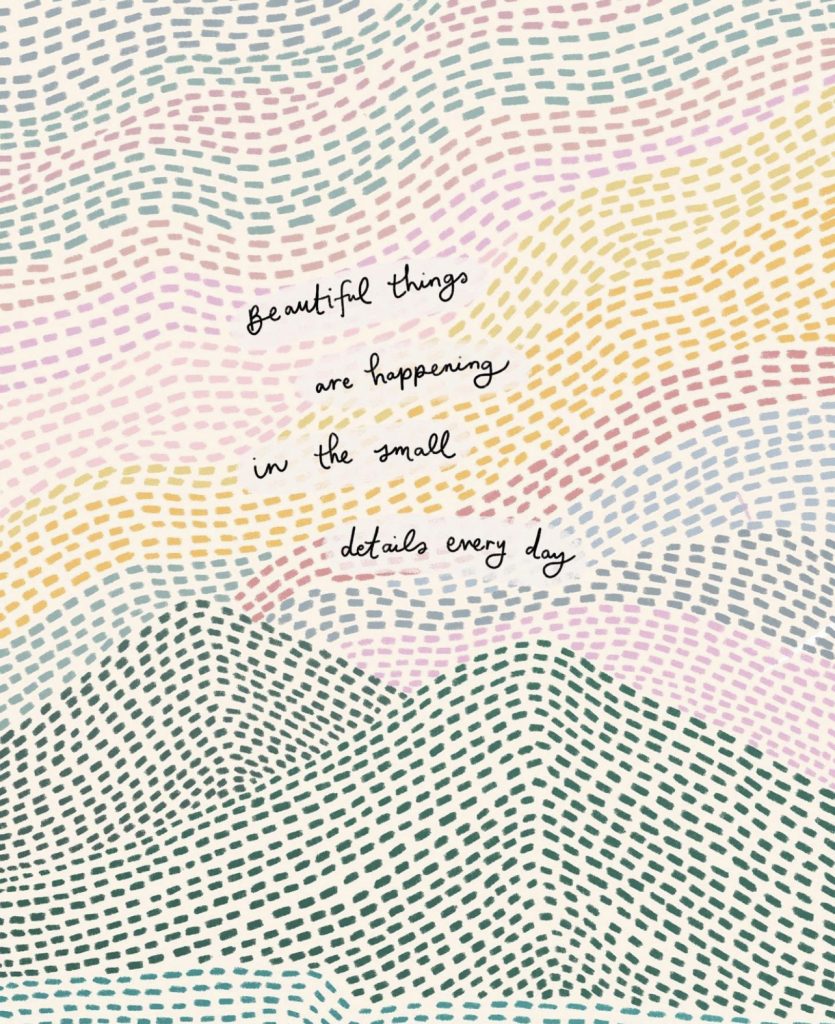 Beautiful things
are happening
in the small
details every day